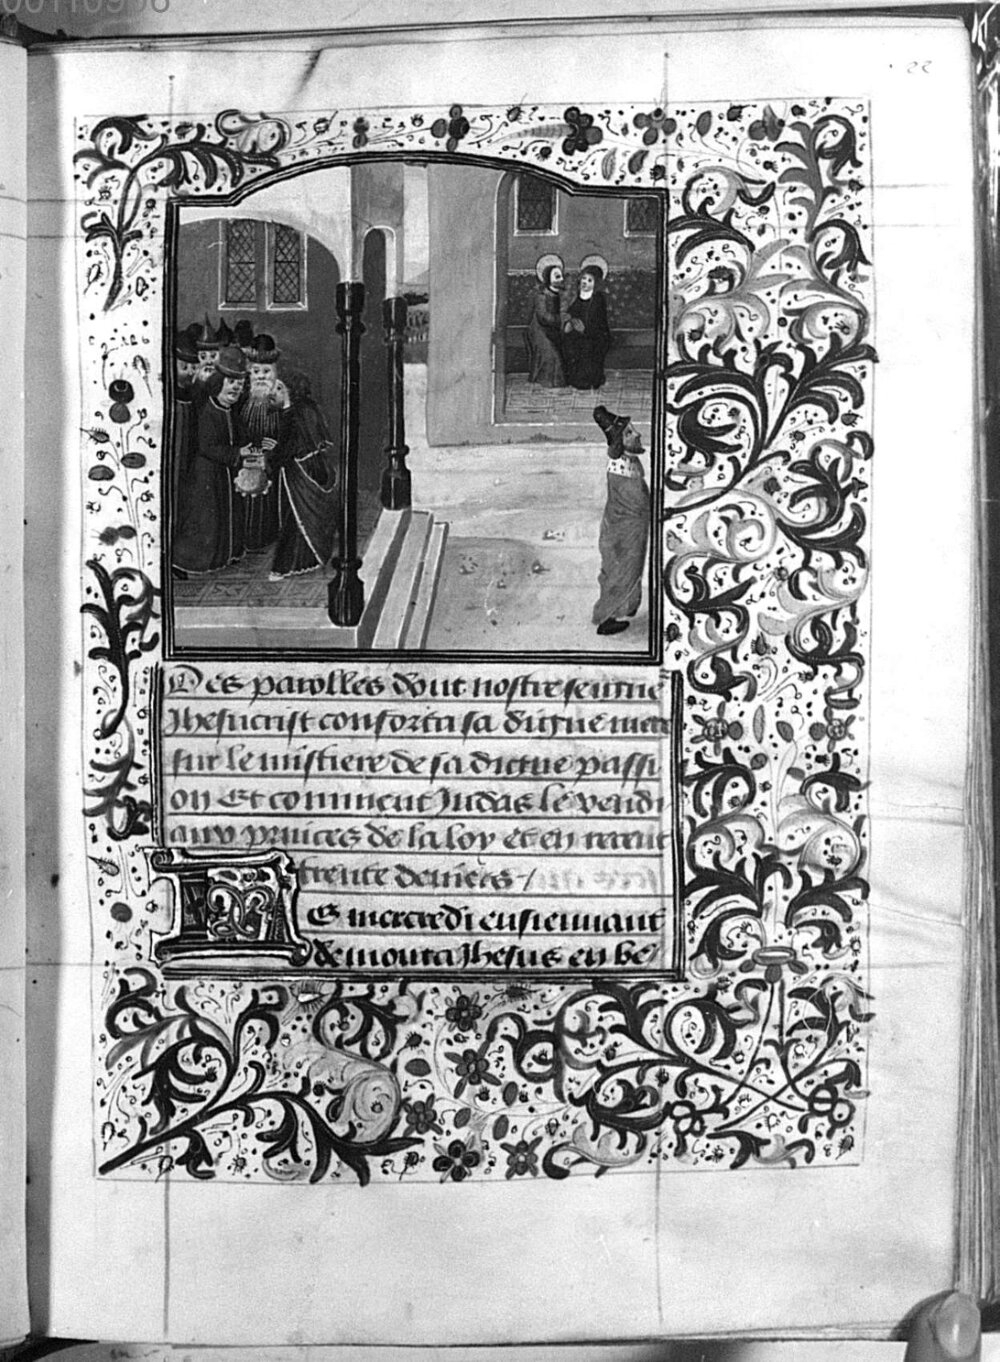 22
Des parolles dont nostre seigne
Jhesucrist conforta sa digne mere
sur le mistiere de sa digne passi
on Et comment Judas le vendi
aux princes de la loy et en receut
trente deniers
Le mercredi ensieuuant
demoura Jhesus en be